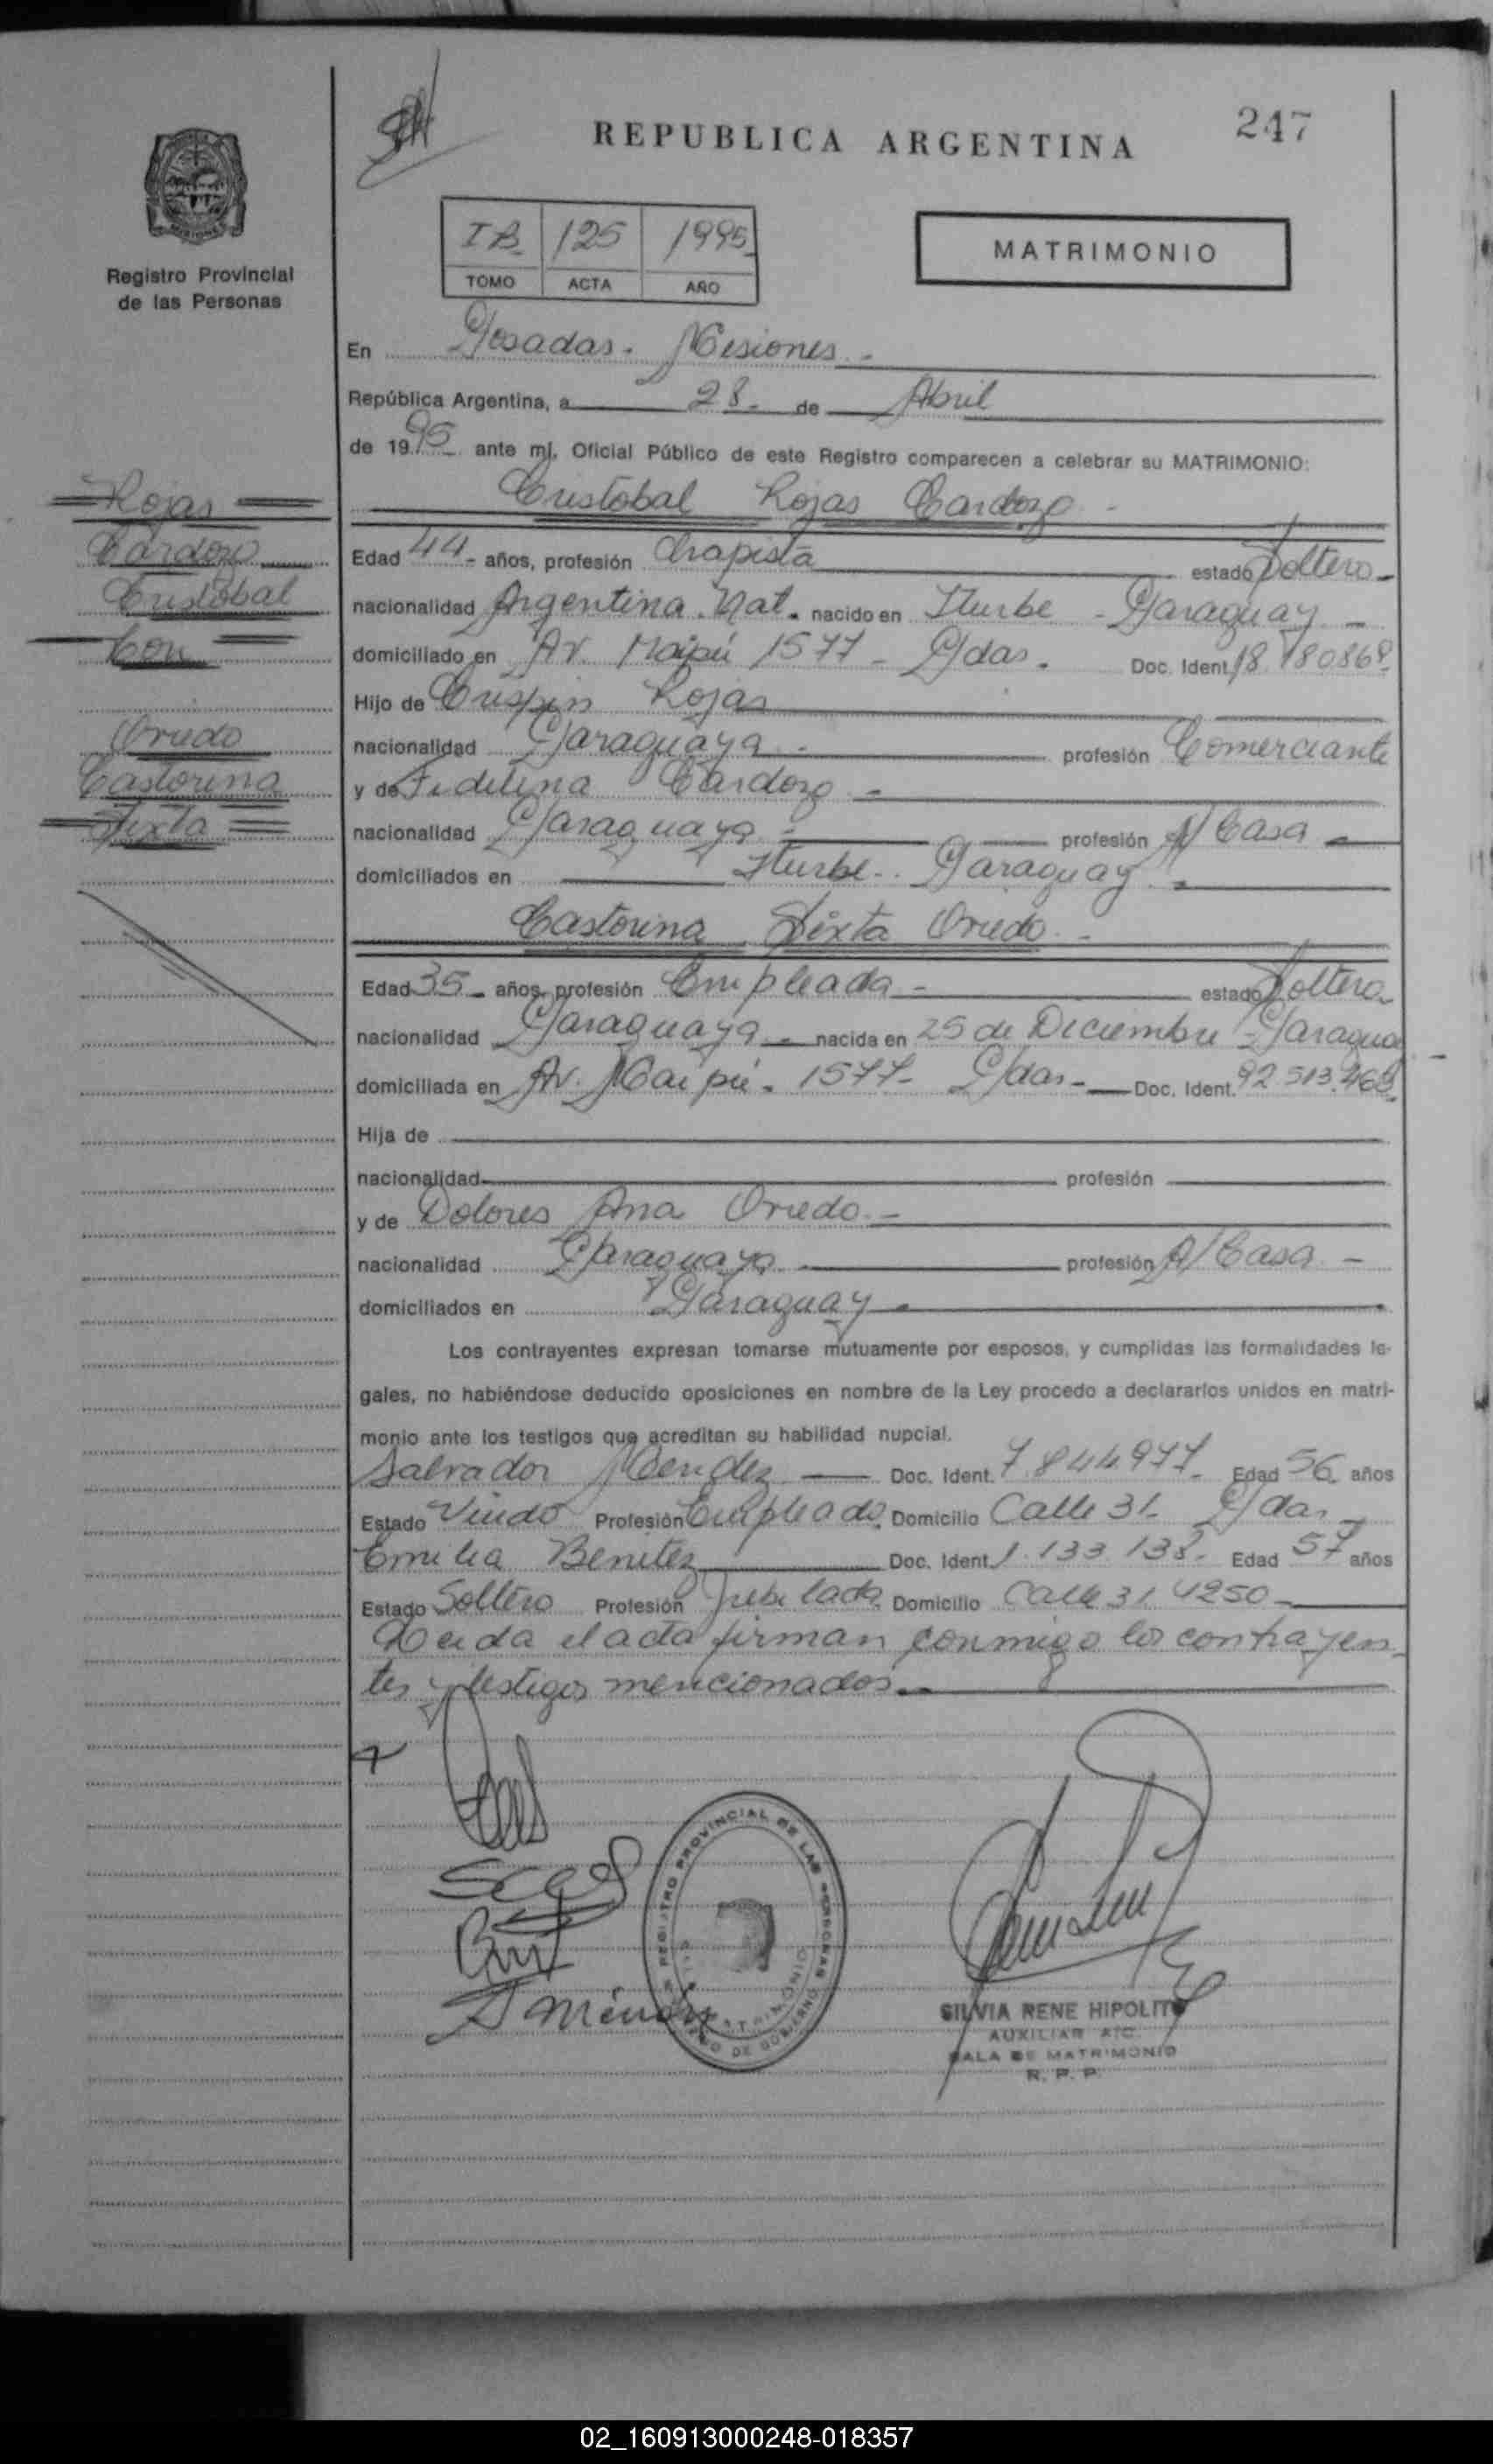 247
REPUBLICA ARGENTINA
Registro Provincial
de las Personas
IB 125 1995
TOMO ACTA AÑO
MATRIMONIO
En Posadas. Misiones
República Argentina, a 28 de Abril
de 1995 ante mí, Oficial Público de este Registro comparecen a celebrar su MATRIMONIO:
Rojas
Cardozo
Cristobal
Con
Oviedo
Castorina
Sixta
Cristobal Rojas Cardozo
Edad 44 años, profesión Chapista estado Soltero
nacionalidad Argentina. Nat. nacido en Iturbe - Paraguay
domiciliado en Av. Maipú 1577 - Pdas. Doc. Ident. 18.780.868
Hijo de Crispin Rojas
nacionalidad Paraguaya profesión Comerciante
y de Fidelina Cardozo
nacionalidad Paraguaya profesión A/ Casa
domiciliados en Iturbe - Paraguay
Castorina Sixta Oviedo
Edad 35 años, profesión Empleada estado Soltera
nacionalidad Paraguaya nacida en 25 de Diciembre - Paraguay
domiciliada en Av. Maipú. 1577 - Pdas - Doc. Ident. 92.513.468
Hija de
nacionalidad profesión
y de Dolores Ana Oviedo
nacionalidad Paraguaya profesión A/ Casa
domiciliados en Paraguay
Los contrayentes expresan tomarse mutuamente por esposos, y cumplidas las formalidades le-
gales, no habiéndose deducido oposiciones en nombre de la Ley procedo a declararlos unidos en matri-
monio ante los testigos que acreditan su habilidad nupcial.
Salvador Mendez Doc. Ident. 7.844.977 Edad 56 años
Estado Viudo Profesión Empleado Domicilio Calle 31 - Pdas
Emilia Benitez Doc. Ident. 1.133.138 Edad 57 años
Estado Soltero Profesión Jubilada Domicilio Calle 31 4250
Leida el acta firman conmigo los contrayen-
tes y testigos mencionados.
S Méndez
REGISTRO PROVINCIAL DE LAS PERSONAS
MATRIMONIO
DE GOBIERNO
SILVIA RENE HIPOLITO
AUXILIAR
SALA DE MATRIMONIO
R. P. P.
02_160913000248-018357